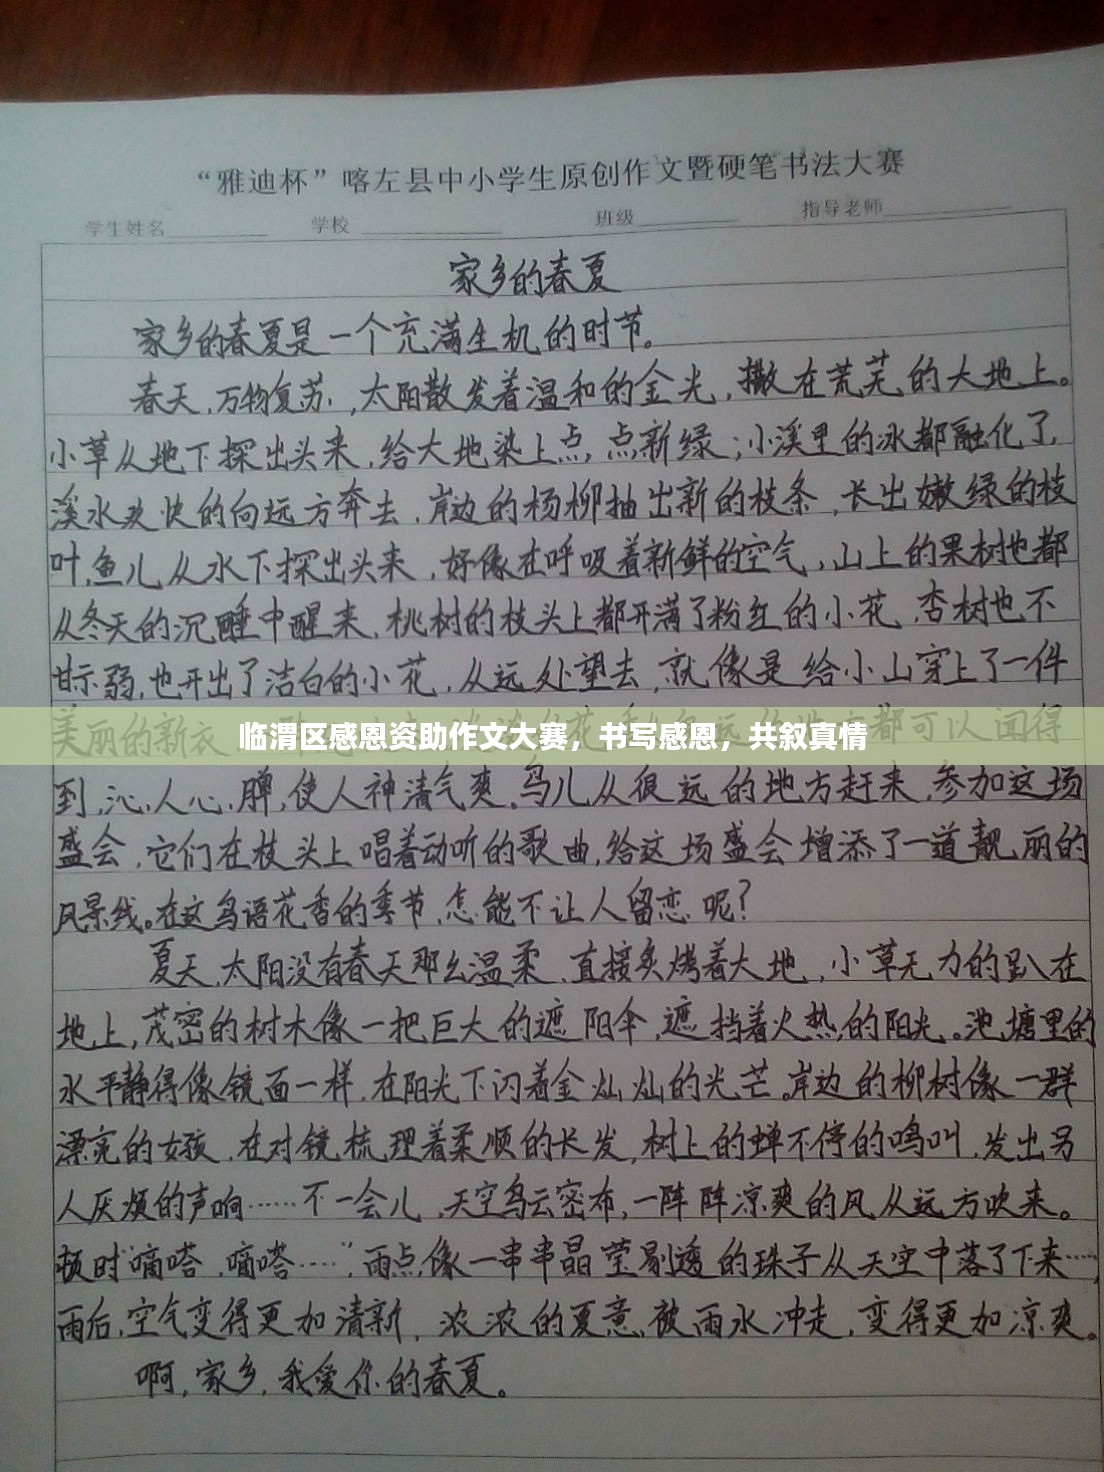 “雅迪杯”喀左县中小学生原创作文暨硬笔书法大赛
学生姓名 学校 班级 指导老师
家乡的春夏
家乡的春夏是一个充满生机的时节。
春天,万物复苏,太阳散发着温和的金光,撒在荒芜的大地上。
小草从地下探出头来,给大地染上点点新绿;小溪里的冰都融化了,
溪水欢快的向远方奔去,岸边的杨柳抽出新的枝条,长出嫩绿的枝
叶,鱼儿从水下探出头来,好像在呼吸着新鲜的空气,山上的果树也都
从冬天的沉睡中醒来,桃树的枝头上都开满了粉红的小花,杏树也不
甘示弱,也开出了洁白的小花,从远处望去,就像是给小山穿上了一件
美丽的新衣 都可以闻得
临渭区感恩资助作文大赛，书写感恩，共叙真情
到,沁人心脾,使人神清气爽,鸟儿从很远的地方赶来,参加这场
盛会,它们在枝头上唱着动听的歌曲,给这场盛会增添了一道靓丽的
风景线。在这鸟语花香的季节,怎能不让人留恋呢?
夏天,太阳没有春天那么温柔,直接炙烤着大地,小草无力的趴在
地上,茂密的树木像一把巨大的遮阳伞,遮挡着火热的阳光。池塘里的
水平静得像镜面一样,在阳光下闪着金灿灿的光芒。岸边的柳树像一群
漂亮的女孩,在对镜梳理着柔顺的长发,树上的蝉不停的鸣叫,发出另
人厌烦的声响……不一会儿,天空乌云密布,一阵阵凉爽的风从远方吹来。
顿时“嘀嗒,嘀嗒……”,雨点像一串串晶莹剔透的珠子从天空中落了下来……,
雨后,空气变得更加清新,浓浓的夏意被雨水冲走,变得更加凉爽。
啊,家乡,我爱你的春夏。